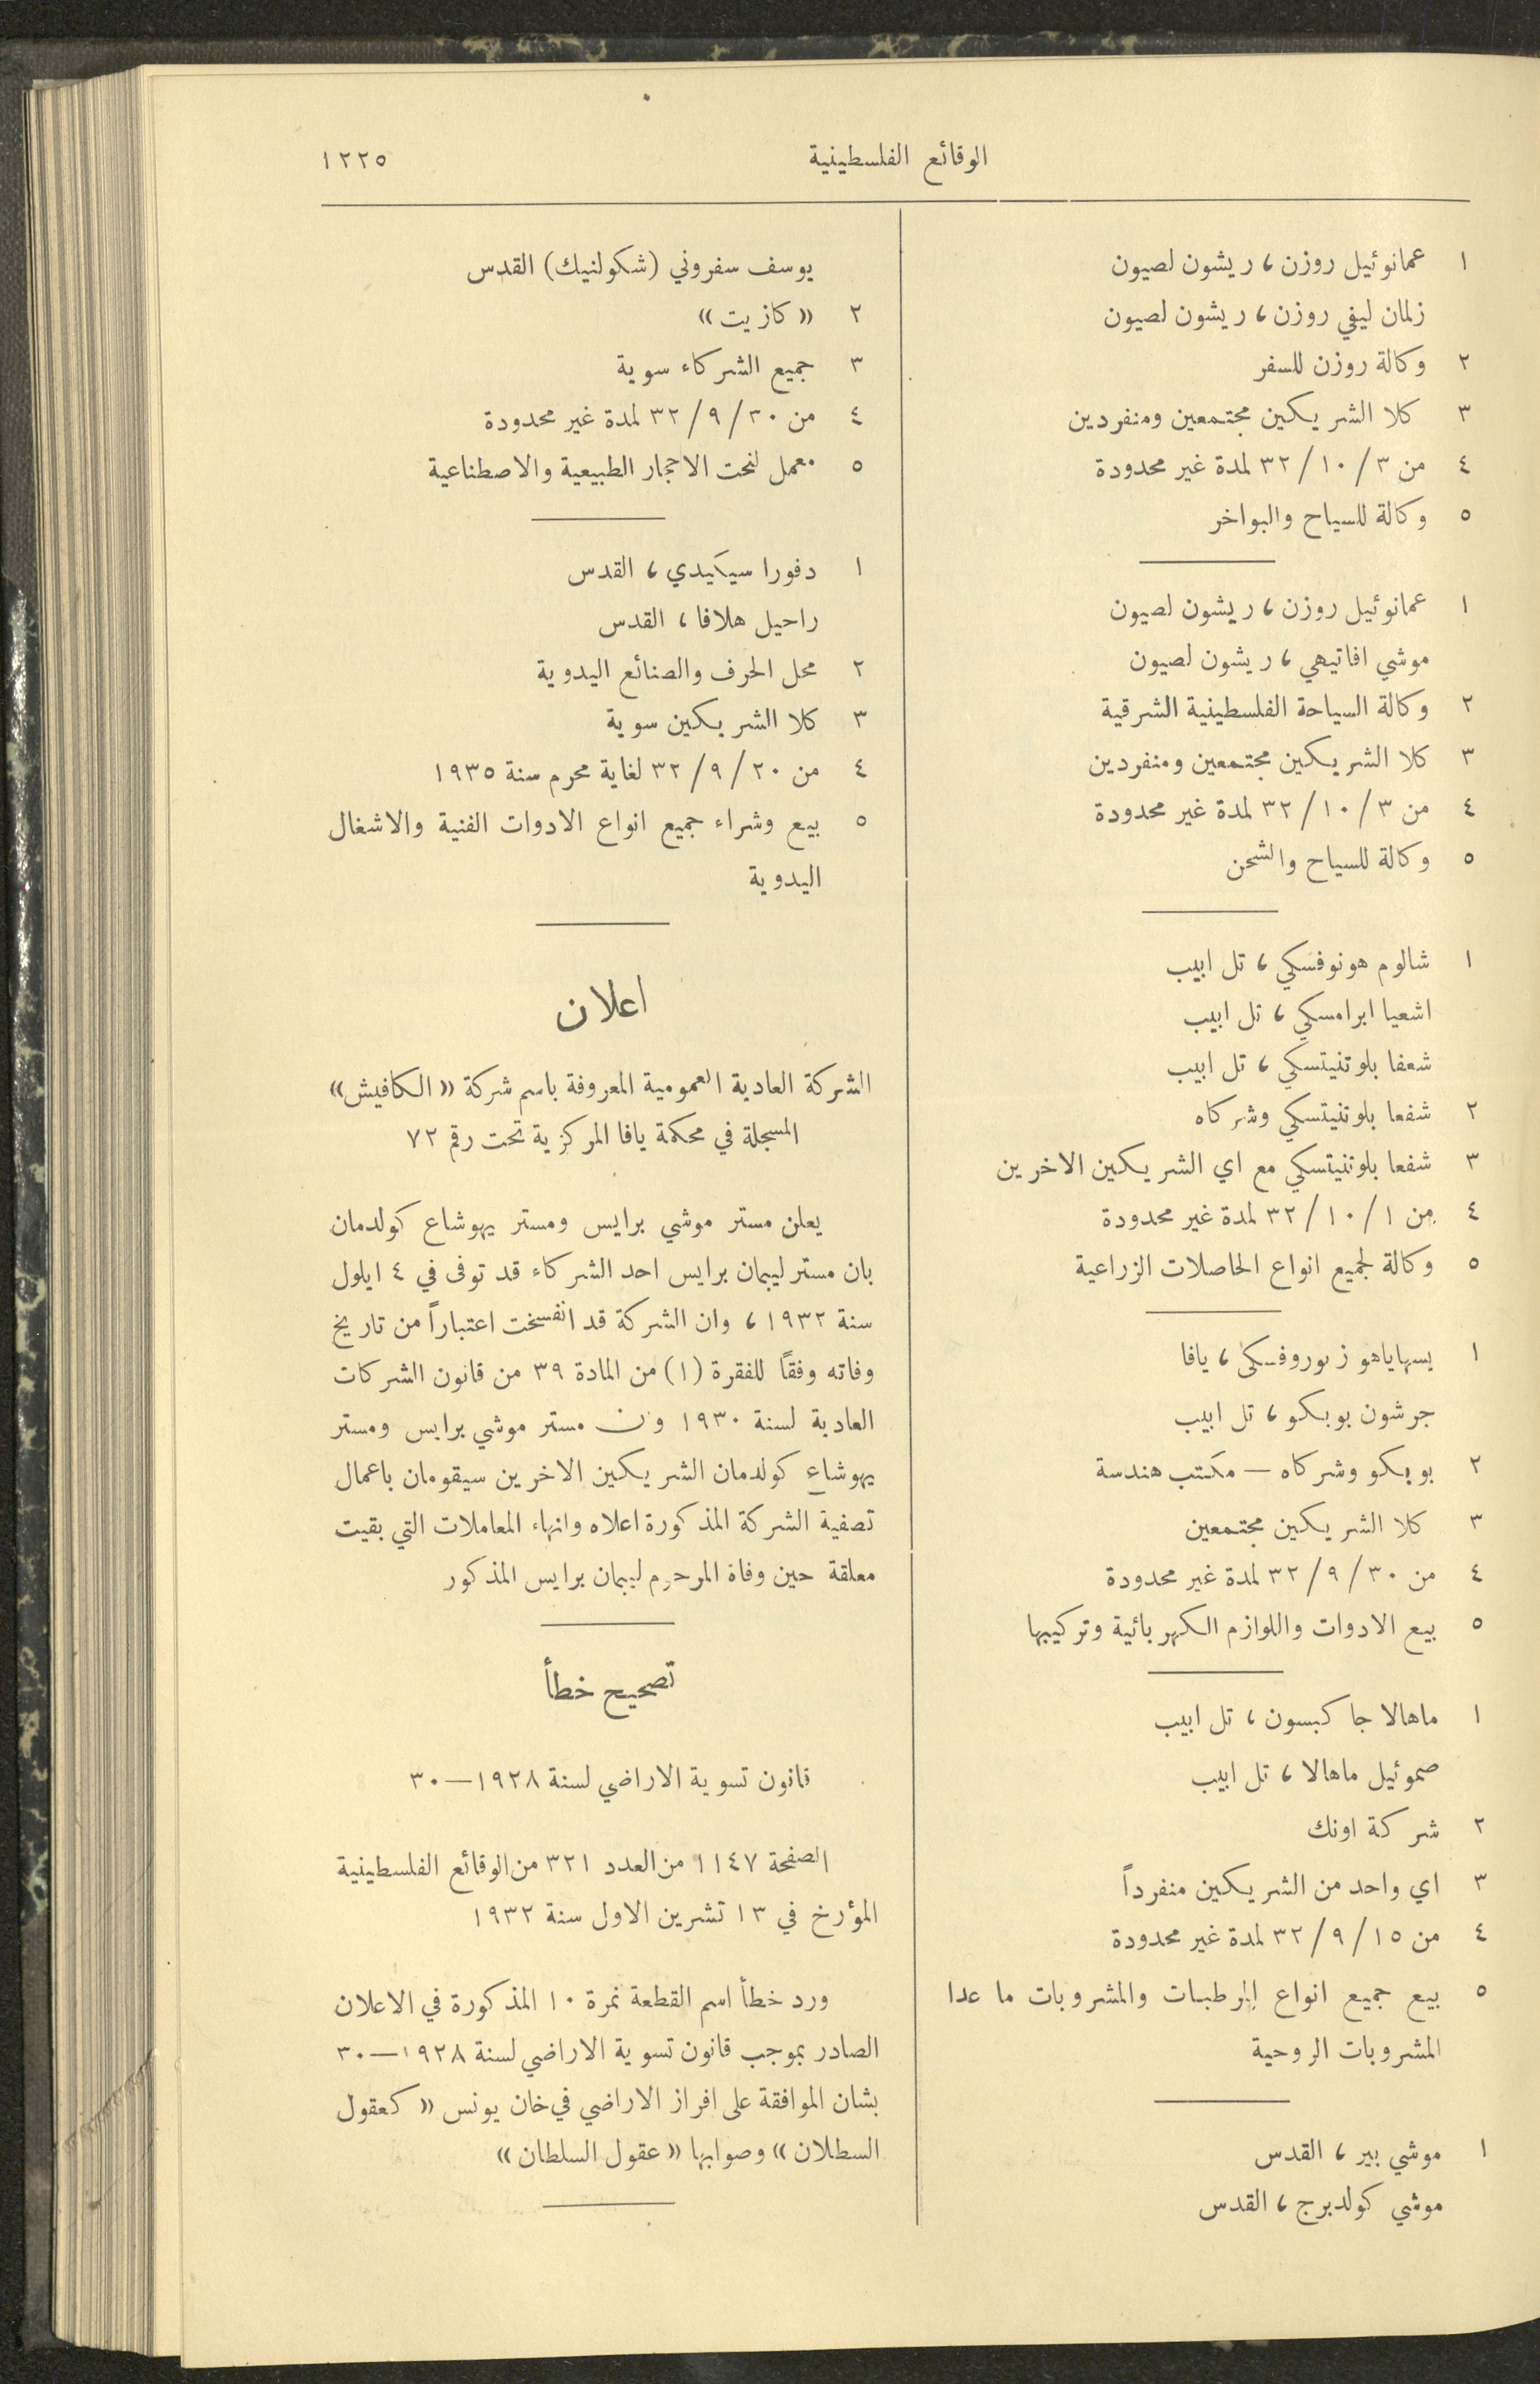 الوقائع الفلسطينية
١٢٢٥
١ عمانوئيل روزن، ريشون لصيون
زلمان ليفي روزن، ريشون لصيون
٢ وكالة روزن للسفر
٣ كلا الشريكين مجتمعين ومنفردين
٤ من ٣/١٠/٣٢ لمدة غير محدودة
٥ وكالة للسياح والبواخر
١ عمانوئيل روزن، ريشون لصيون
موشي افاتيهي، ريشون لصيون
٢ وكالة السياحة الفلسطينية الشرقية
٣ كلا الشريكين مجتمعين ومنفردين
٤ من ٣/١٠/٣٢ لمدة غير محدودة
٥ وكالة للسياح والشحن
١ شالوم هونوفسكي، تل ابيب
اشعيا ابرامسكي، تل ابيب
شعفا بلوتنيتسكي، تل ابيب
٢ شفعا بلوتنيتسكي وشركاه
٣ شفعا بلوتنيتسكي مع اي الشريكين الاخرين
٤ من ١/١٠/٣٢ لمدة غير محدودة
٥ وكالة لجميع انواع الحاصلات الزراعية
١ يسهاياهو زبوروفسكي، يافا
جرشون بوبكو، تل ابيب
٢ بوبكو وشركاه — مكتب هندسة
٣ كلا الشريكين مجتمعين
٤ من ٣٠/٩/٣٢ لمدة غير محدودة
٥ بيع الادوات واللوازم الكهربائية وتركيبها
١ ماهالا جاكبسون، تل ابيب
صموئيل ماهالا، تل ابيب
٢ شركة اونك
٣ اي واحد من الشريكين منفرداً
٤ من ١٥/٩/٣٢ لمدة غير محدودة
٥ بيع جميع انواع المرطبات والمشروبات ما عدا
المشروبات الروحية
١ موشي بير، القدس
موشي كولدبرج، القدس
يوسف سفروني (شكولنيك) القدس
٢ «كازيت»
٣ جميع الشركاء سوية
٤ من ٣٠/٩/٣٢ لمدة غير محدودة
٥ معمل لنحت الاحجار الطبيعية والاصطناعية
١ دفورا سيكيدي، القدس
راحيل هلافا، القدس
٢ محل الحرف والصنائع اليدوية
٣ كلا الشريكين سوية
٤ من ٢٠/٩/٣٢ لغاية محرم سنة ١٩٣٥
٥ بيع وشراء جميع انواع الادوات الفنية والاشغال
اليدوية
اعلان
الشركة العادية العمومية المعروفة باسم شركة «الكافيش»
المسجلة في محكمة يافا المركزية تحت رقم ٧٢
يعلن مستر موشي برايس ومستر يهوشاع كولدمان
بان مستر ليبمان برايس احد الشركاء قد توفى في ٤ ايلول
سنة ١٩٣٢، وان الشركة قد انفسخت اعتباراً من تاريخ
وفاته وفقاً للفقرة (١) من المادة ٣٩ من قانون الشركات
العادية لسنة ١٩٣٠ ون مستر موشي برايس ومستر
يهوشاع كولدمان الشريكين الاخرين سيقومان باعمال
تصفية الشركة المذكورة اعلاه وانهاء المعاملات التي بقيت
معلقة حين وفاة المرحوم ليبمان برايس المذكور
تصحيح خطأ
قانون تسوية الاراضي لسنة ١٩٢٨—٣٠
الصفحة ١١٤٧ من العدد ٣٢١ من الوقائع الفلسطينية
المؤرخ في ١٣ تشرين الاول سنة ١٩٣٢
ورد خطأ اسم القطعة نمرة ١٠ المذكورة في الاعلان
الصادر بموجب قانون تسوية الاراضي لسنة ١٩٢٨—٣٠
بشان الموافقة على افراز الاراضي في خان يونس «كعقول
السطلان» وصوابها «عقول السلطان»